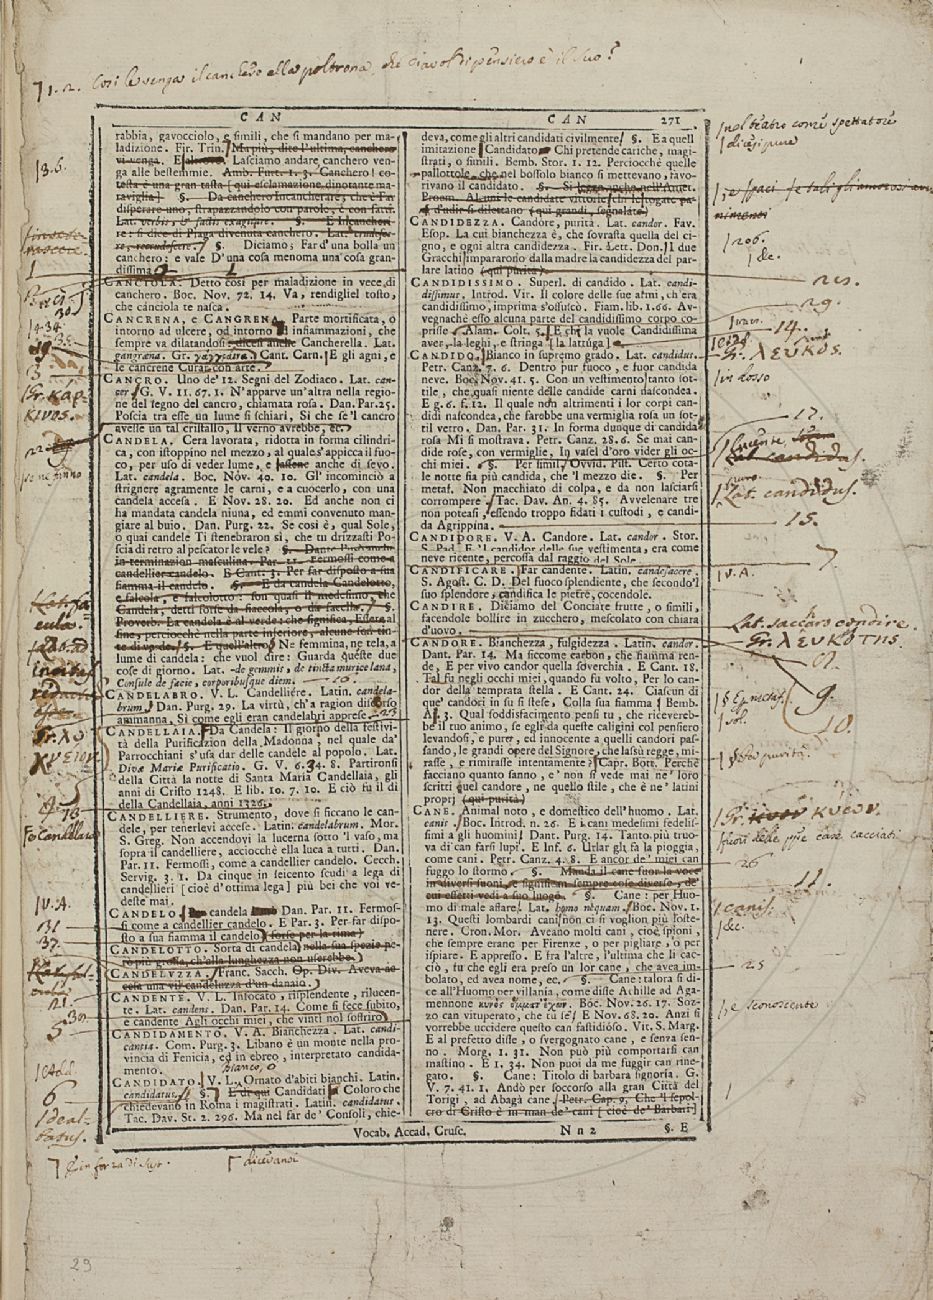 71.2. Così le venga il canchero alla poltrona, che diavol di pensiero è il suo?
CAN
CAN 271
rabbia, gavocciolo, e simili, che si mandano per ma-
ladizione. Fir. Trin. Ma più, dite l'ultima, canchero
vi venga. E Lasciamo andare canchero ven-
ga alle bestemmie. Amb. Furt. 1. 3. Canchero! co-
testa è una gran tasta [qui esclamazione dinotante ma-
raviglia] §. Da canchero Incancherare; che è Far
disperare uno, strapazzandolo con parole, e con fatti.
Lat. verbis, & factis exasperare. §. E Incancheri-
re: si dice di Piaga divenuta canchero. Lat.
§. Diciamo; Far d'una bolla un
canchero: e vale D'una cosa menoma una cosa gran-
dissima
CANCIOLA: Detto così per maladizione in vece di
canchero. Boc. Nov. 72. 14. Va, rendigliel tosto,
che cánciola te nasca.
CANCRENA, e CANGRENA. Parte mortificata, o
intorno ad ulcere, od intorno ad infiammazioni, che
sempre va dilatandosi: dicesi anche Cancherella. Lat.
gangræna. Gr. γάγγραινα. Cant. Carn. E gli agni, e
le cancrene Curar con arte.
CANCRO. Uno de' 12. Segni del Zodiaco. Lat. can-
cer. G. V. 11. 67. 1. N'apparve un'altra nella regio-
ne del segno del cancro, chiamata rosa. Dan. Par. 25.
Poscia tra esse un lume si schiarì, Sì che se 'l cancro
avesse un tal cristallo, Il verno avrebbe, ec.
CANDELA. Cera lavorata, ridotta in forma cilindri-
ca, con istoppino nel mezzo, al quale s'appicca il fuo-
co, per uso di veder lume, e fassene anche di sevo.
Lat. candela. Boc. Nov. 40. 10. Gl'incominciò a
strignere agramente le carni, e a cuocerlo, con una
candela accesa. E Nov. 28. 20. Ed anche non ci
ha mandata candela niuna, ed emmi convenuto man-
giare al buio. Dan. Purg. 22. Se così è, qual Sole,
o quai candele Ti stenebraron sì, che tu drizzasti Po-
scia di retro al pescator le vele? §. Dante l'usò anche
in terminazion masculina. Par. 11. Fermossi come a
candellier candelo. E Cant. 3. Per far disposto a sua
fiamma il candelo. §. E da candela Candelotto,
e falcola, e falcolotto: son quasi il medesimo, che
Candela, detti forse da fiaccola, o da facella. §.
Proverb. La candela è al verde: che significa, Essere al
fine, perciocchè nella parte inferiore, alcune son tin-
te di verde. §. E quell'altro Ne femmina, ne tela, a
lume di candela: che vuol dire: Guarda queste due
cose di giorno. Lat. -de gemmis, de tincta murice lana,
Consule de facie, corporibusque diem.
CANDELABRO. V. L. Candelliére. Latin. candela-
brum. Dan. Purg. 29. La virtù, ch'a ragion discorso
ammanna, Sì come egli eran candelabri apprese.
CANDELLAIA. Da Candela: Il giorno della festivi-
tà della Purificazion della Madonna, nel quale da'
Parrocchiani s'usa dar delle candele al popolo. Lat.
Divæ Mariæ Purificatio. G. V. 6. 34. 8. Partironsi
della Città la notte di Santa Maria Candellaia, gli
anni di Cristo 1248. E lib. 10. 7. 10. E ciò fu il dì
della Candellaia, anni 1326.
CANDELLIERE. Strumento, dove si ficcano le can-
dele, per tenerlevi accese. Latin. candelabrum. Mor.
S. Greg. Non accendovi la lucerna sotto 'l vaso, ma
sopra il candelliere, acciocchè ella luca a tutti. Dan.
Par. 11. Fermossi, come a candellier candelo. Cecch.
Servig. 3. 1. Da cinque in seicento scudi a lega di
candellieri [cioè d'ottima lega] più bei che voi ve-
deste mai.
CANDELO. candela Dan. Par. 11. Fermos-
si come a candellier candelo. E Par. 3. Per far dispo-
sto a sua fiamma il candelo (forse per la rima)
CANDELOTTO. Sorta di candela nella sua spezie pe-
rò più grossa, ch'alla lunghezza non userebbe.
CANDELVZZA. Franc. Sacch. Op. Div. Aveva ac-
cesa una vil candeluzza d'un danaio.
CANDENTE. V. L. Infocato, risplendente, rilucen-
te. Lat. candens. Dan. Par. 14. Come si fece subito,
e candente Agli occhi miei, che vinti nol soffriro
CANDIDAMENTO. V. A. Bianchezza. Lat. candi-
cantia. Com. Purg. 3. Libano è un monte nella pro-
vincia di Fenicia, ed in ebreo, interpretato candida-
mento. bianco, o
CANDIDATO. V. L. Ornato d'abiti bianchi. Latin.
candidatus. §. E di qui Candidati Coloro che
chiedevano in Roma i magistrati. Latin. candidatus.
Tac. Dav. St. 2. 296. Ma nel far de' Consoli, chie-
deva, come gli altri candidati civilmente. §. E a quell
imitazione Candidato Chi pretende cariche, magi-
strati, o simili. Bemb. Stor. 1. 12. Perciocchè quelle
pallottole, che nel bossolo bianco si mettevano, favo-
rivano il candidato. §. Si legge anche nell'Amet.
Proem. Al uni le candidate vittorie [che le togate pa-
d'udir si dilettano (qui grandi, segnalate)
CANDIDEZZA. Candore, purità. Lat. candor. Fav.
Esop. La cui bianchezza è, che sovrasta quella del ci-
gno, e ogni altra candidezza. Fir. Lett. Don. I due
Gracchi impararono dalla madre la candidezza del par-
lare latino (qui purità)
CANDIDISSIMO. Superl. di candido. Lat. candi-
dissimus, Introd. Virt. Il colore delle sue armi, ch'era
candidissimo, imprima s'offuscò. Fiam. lib. 1. 66. Av-
vegnachè esso alcuna parte del candidissimo corpo co-
prisse. Alam. Colt. 5. E chi la vuole Candidissima
aver, la leghi, e stringa [la lattuga]
CANDIDO. Bianco in supremo grado. Lat. candidus.
Petr. Canz. 7. 6. Dentro pur fuoco, e fuor candida
neve. Boc. Nov. 41. 5. Con un vestimento tanto sot-
tile, che quasi niente delle candide carni nascondea.
E g. 6. f. 12. Il quale non altrimenti i lor corpi can-
didi nascondea, che farebbe una vermiglia rosa un sot-
til vetro. Dan. Par. 31. In forma dunque di candida
rosa Mi si mostrava. Petr. Canz. 28. 6. Se mai can-
dide rose, con vermiglie, In vasel d'oro vider gli oc-
chi miei. §. Per simil. Ovvid. Pist. Certo cota-
le notte sia più candida, che 'l mezzo die. §. Per
metaf. Non macchiato di colpa, e da non lasciarsi
corrompere. Tac. Dav. An. 4. 85. Avvelenare tre
non poteasi, essendo troppo fidati i custodi, e candi-
da Agrippina.
CANDIDORE. V. A. Candore. Lat. candor. Stor.
S. Pad. E 'l candidor delle sue vestimenta, era come
neve ricente, percossa dal raggio del Sole.
CANDIFICARE. Far candente. Latin. candefacere.
S. Agost. C. D. Del fuoco splendiente, che secondo 'l
suo splendore candifica le pietre, cocendole.
CANDIRE. Diciamo del Conciare frutte, o simili,
facendole bollire in zucchero, mescolato con chiara
d'uovo.
CANDORE. Bianchezza, fulgidezza. Latin. candor.
Dant. Par. 14. Ma siccome carbon, che fiamma ren-
de, E per vivo candor quella soverchia. E Cant. 18.
Tal fu negli occhi miei, quando fu volto, Per lo can-
dor della temprata stella. E Cant. 24. Ciascun di
que' candori in su si stese, Colla sua fiamma. Bemb.
As. 3. Qual soddisfacimento pensi tu, che riceverèb-
be il tuo animo, se egli da queste caligini col pensiero
levandosi, e puro, ed innocente a quelli candori pas-
sando, le grandi opere del Signore, che lassù regge, mi-
rasse, e rimirasse intentamente? Capr. Bott. Perchè
facciano quanto sanno, e' non si vede mai ne' loro
scritti quel candore, ne quello stile, che è ne' latini
proprj (qui purità)
CANE. Animal noto, e domestico dell'huomo. Lat.
canis. Boc. Introd. n. 26. E i cani medesimi fedelis-
simi agli huomini. Dant. Purg. 14. Tanto più truo-
va di can farsi lupi. E Inf. 6. Urlar gli fa la pioggia,
come cani. Petr. Canz. 4. 8. E ancor de' miei can
fuggo lo stormo. §. Manda il cane fuor la voce
in diversi suoni, e significan sempre cose diverse, de'
cui effetti vedi a suo luogo. §. Cane: per Huo-
mo di male affare. Lat. homo nequam. Boc. Nov. 1.
13. Questi lombardi cani non ci si voglion più soste-
nere. Cron. Mor. Aveano molti cani, cioè spioni,
che sempre erano per Firenze, o per pigliare, o per
ispiare. E appresso. E fra l'altre, l'ultima che li cac-
ciò, fu che egli era preso un lor cane, che avea im-
bolato, ed avea nome, ec. §. Cane: talora si di-
ce all'Huomo per villania, come disse Achille ad Aga-
mennone κυνὸς ὄμματ' ἔχων. Boc. Nov. 26. 17. Soz-
zo can vituperato, che tu se'. E Nov. 68. 20. Anzi si
vorrebbe uccidere questo can fastidioso. Vit. S. Marg.
E al prefetto disse, o svergognato cane, e senza sen-
no. Morg. 1. 31. Non può più comportarsi can
mastino. E 1. 34. Non puoi da me fuggir can rine-
gato. §. Cane: Titolo di barbara signoria. G.
V. 7. 41. 1. Andò per soccorso alla gran Città del
Torigi, ad Abagà cane. Petr. Cap. 9. Che 'l sepol-
cro di Cristo è in man de' cani [cioè de' Barbari]
Vocab. Accad. Crusc. Nn2 §. E
13.6.
1
30
14.34
3
Gr. καρ-
κινος.
22
16
23
34
10
Fo Candellaio
|V.A.
31
37.
21.
30
5
|Add.
6
|deal-
batus.
7 in forza di sust.
dicevansi
nel teatro come spettatore
|dicesi pure
|206.
|de.
21.
29.
14.
Gr. λευκος.
|in dosso
17.
candida.
Lat. candidus.
15.
7
|V.A.
Lat. saccaro condire.
Gr. λευκοτης.
9.
10.
|Sol.
|§ Per purità.
|Gr. κυων.
|fuori delle cacciati
26
11.
|canis.
|de.
25
|, e sconoscente
29